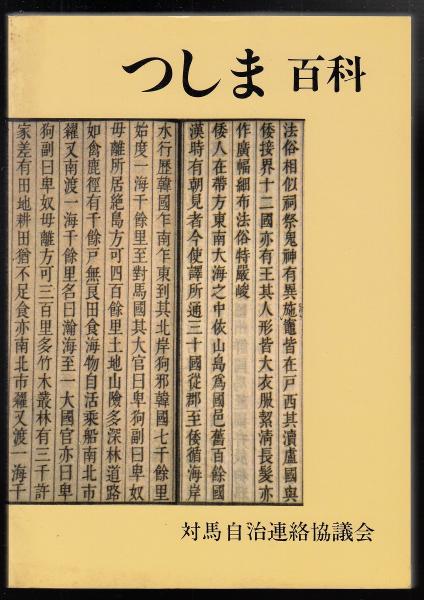 つしま 百科
法俗相似祠祭鬼神有異施竈皆在戸西其瀆盧國與
倭接界十二國亦有王其人形皆大衣服絜淸長髮亦
作廣幅細布法俗特嚴峻
倭人在帶方東南大海之中依山㠀爲國邑舊百餘國
漢時有朝見者今使譯所通三十國從郡至倭循海岸
水行歷韓國乍南乍東到其北岸狗邪韓國七千餘里
始度一海千餘里至對馬國其大官曰卑狗副曰卑奴
毋離所居絶島方可四百餘里土地山險多深林道路
如禽鹿徑有千餘戸無良田食海物自活乗船南北市
糴又南渡一海千餘里名曰瀚海至一大國官亦曰卑
狗副曰卑奴毋離方可三百里多竹木叢林有三千許
家差有田地耕田猶不足食亦南北市糴又渡一海千
対馬自治連絡協議会